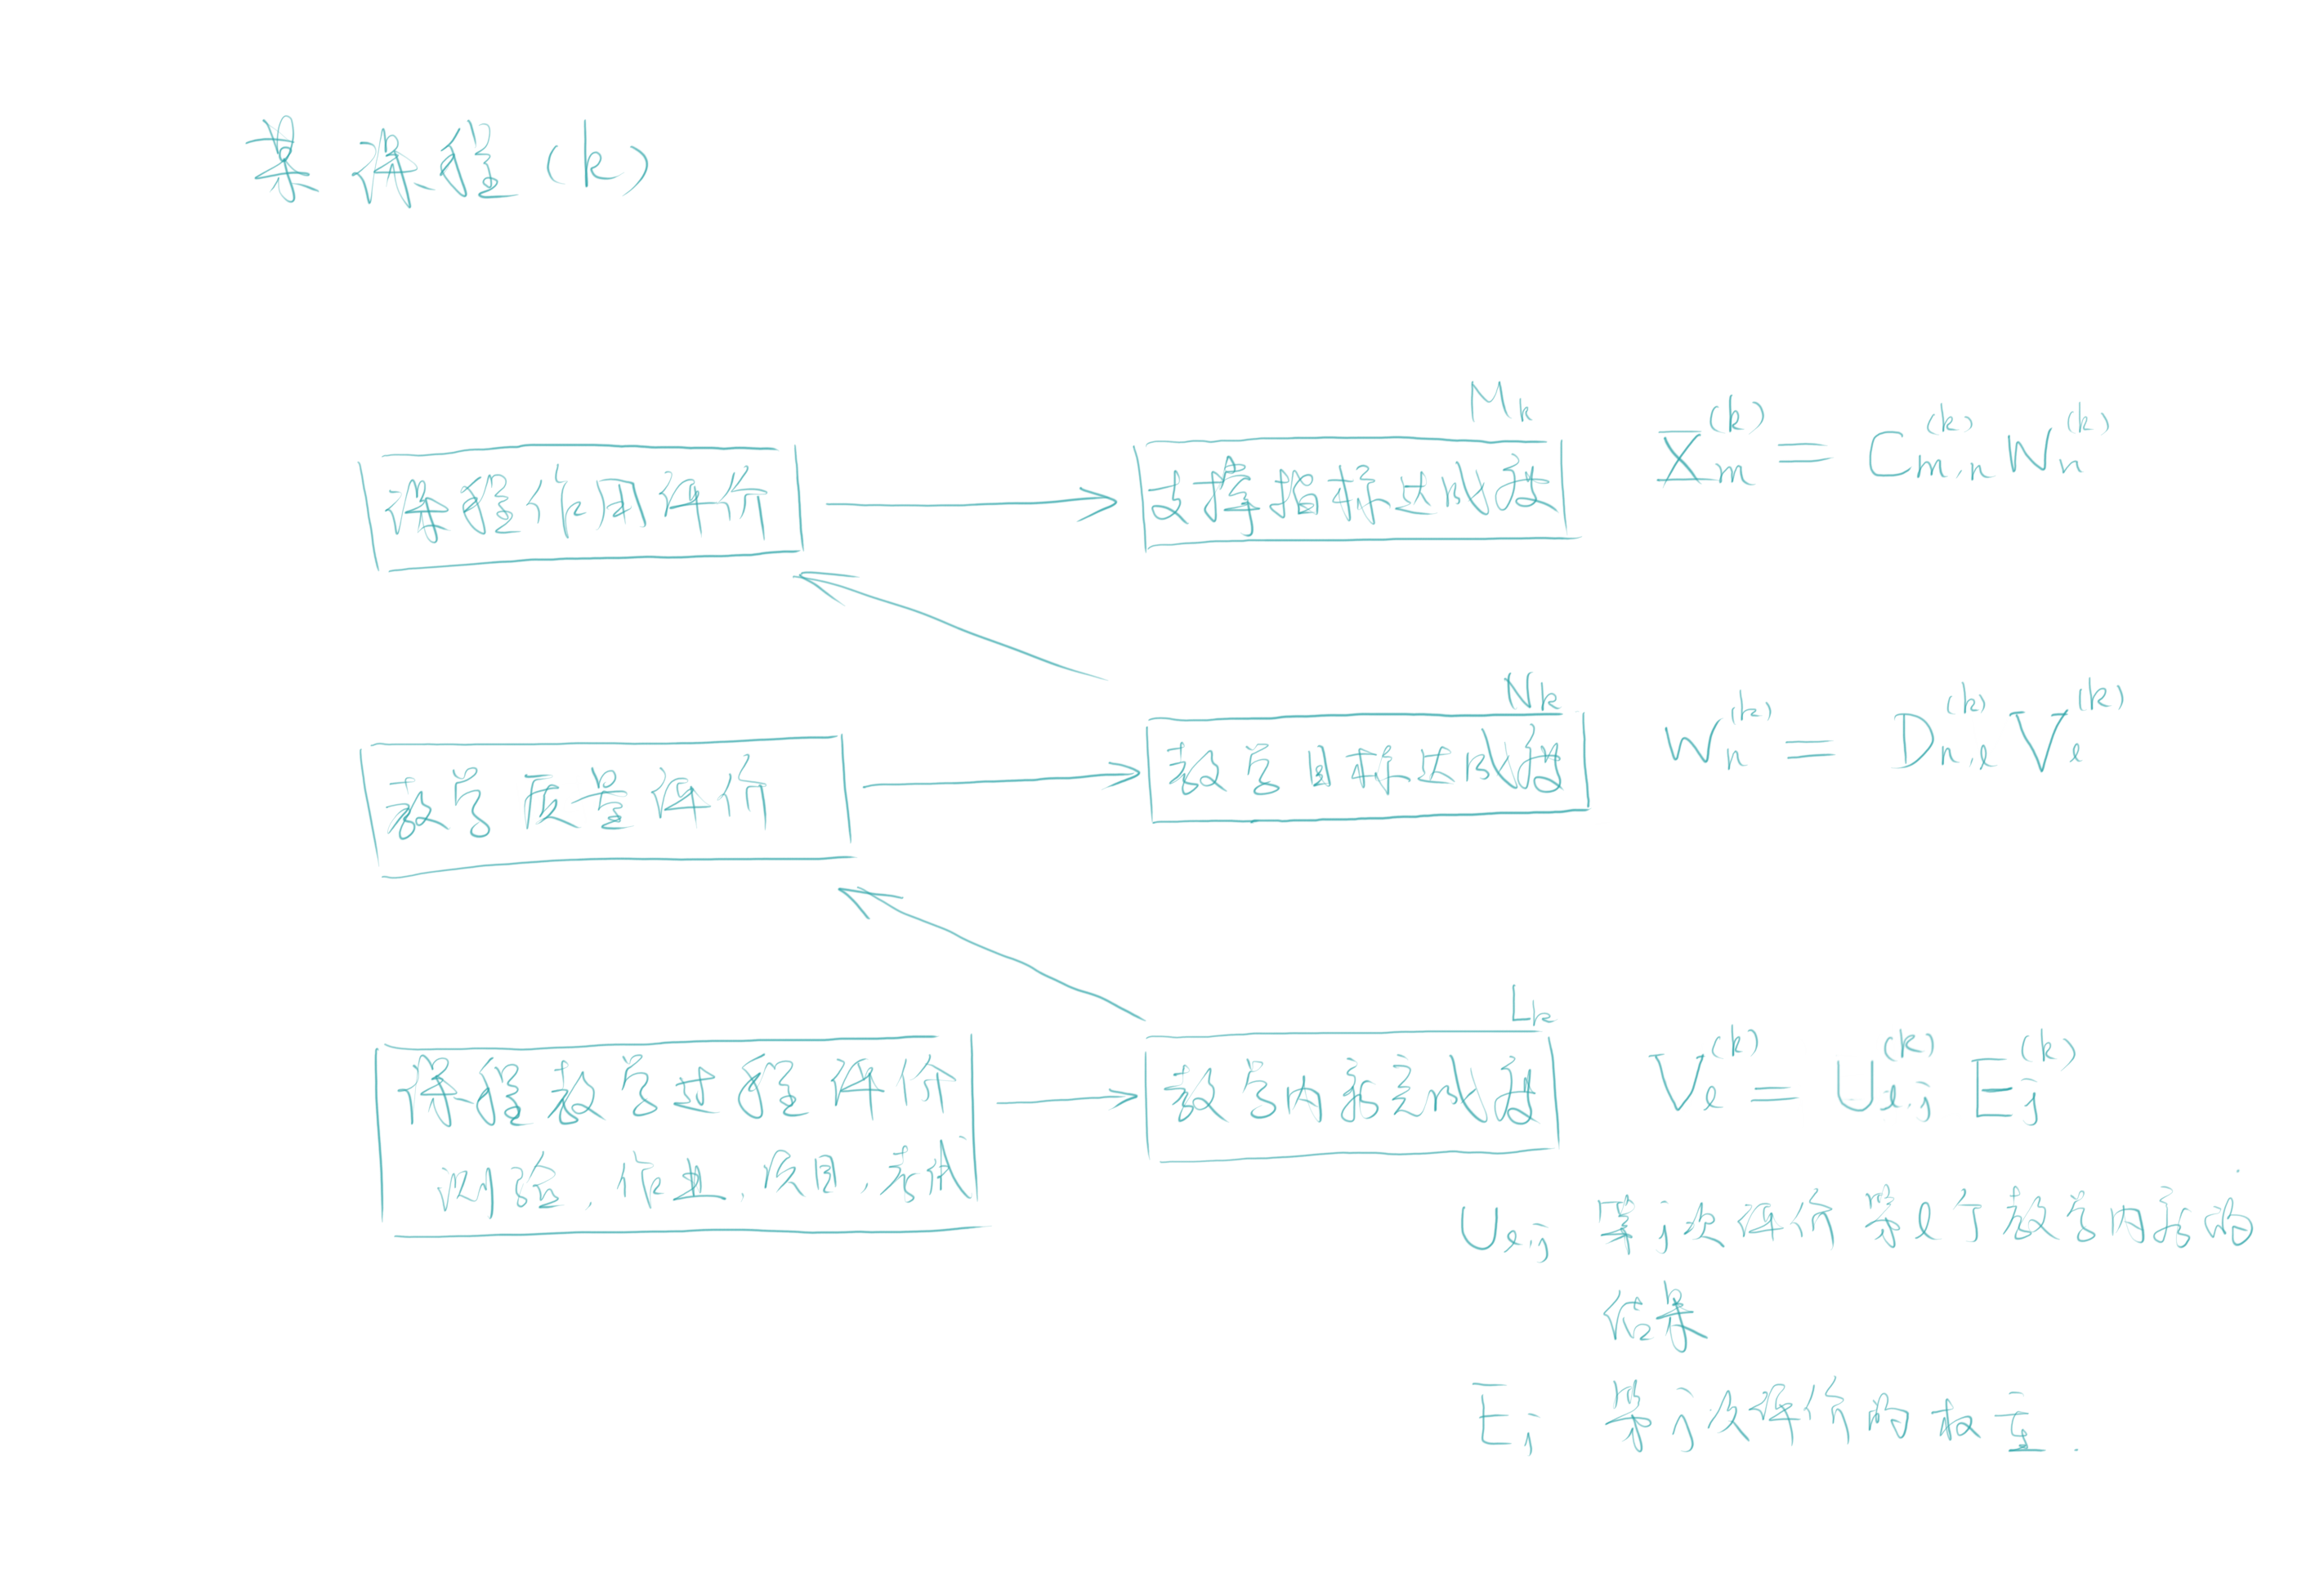 某课程(k)
M_k
课程合同评价
支撑指标达成值
X̄_m^(k) = C_{m,n}^(k) W_n^(k)
N_k
教学质量评价
教学目标达成值
W_n^(k) = D_{n,l}^(k) V_l^(k)
L_k
课程教学过程评价
测验,作业,
教学内容达成值
V_l^(k) = U_{l,j}^(k) E_j^(k)
U_{l,j} 第j次评价第l个教学内容的
结果
E_j 第j次评价的权重.